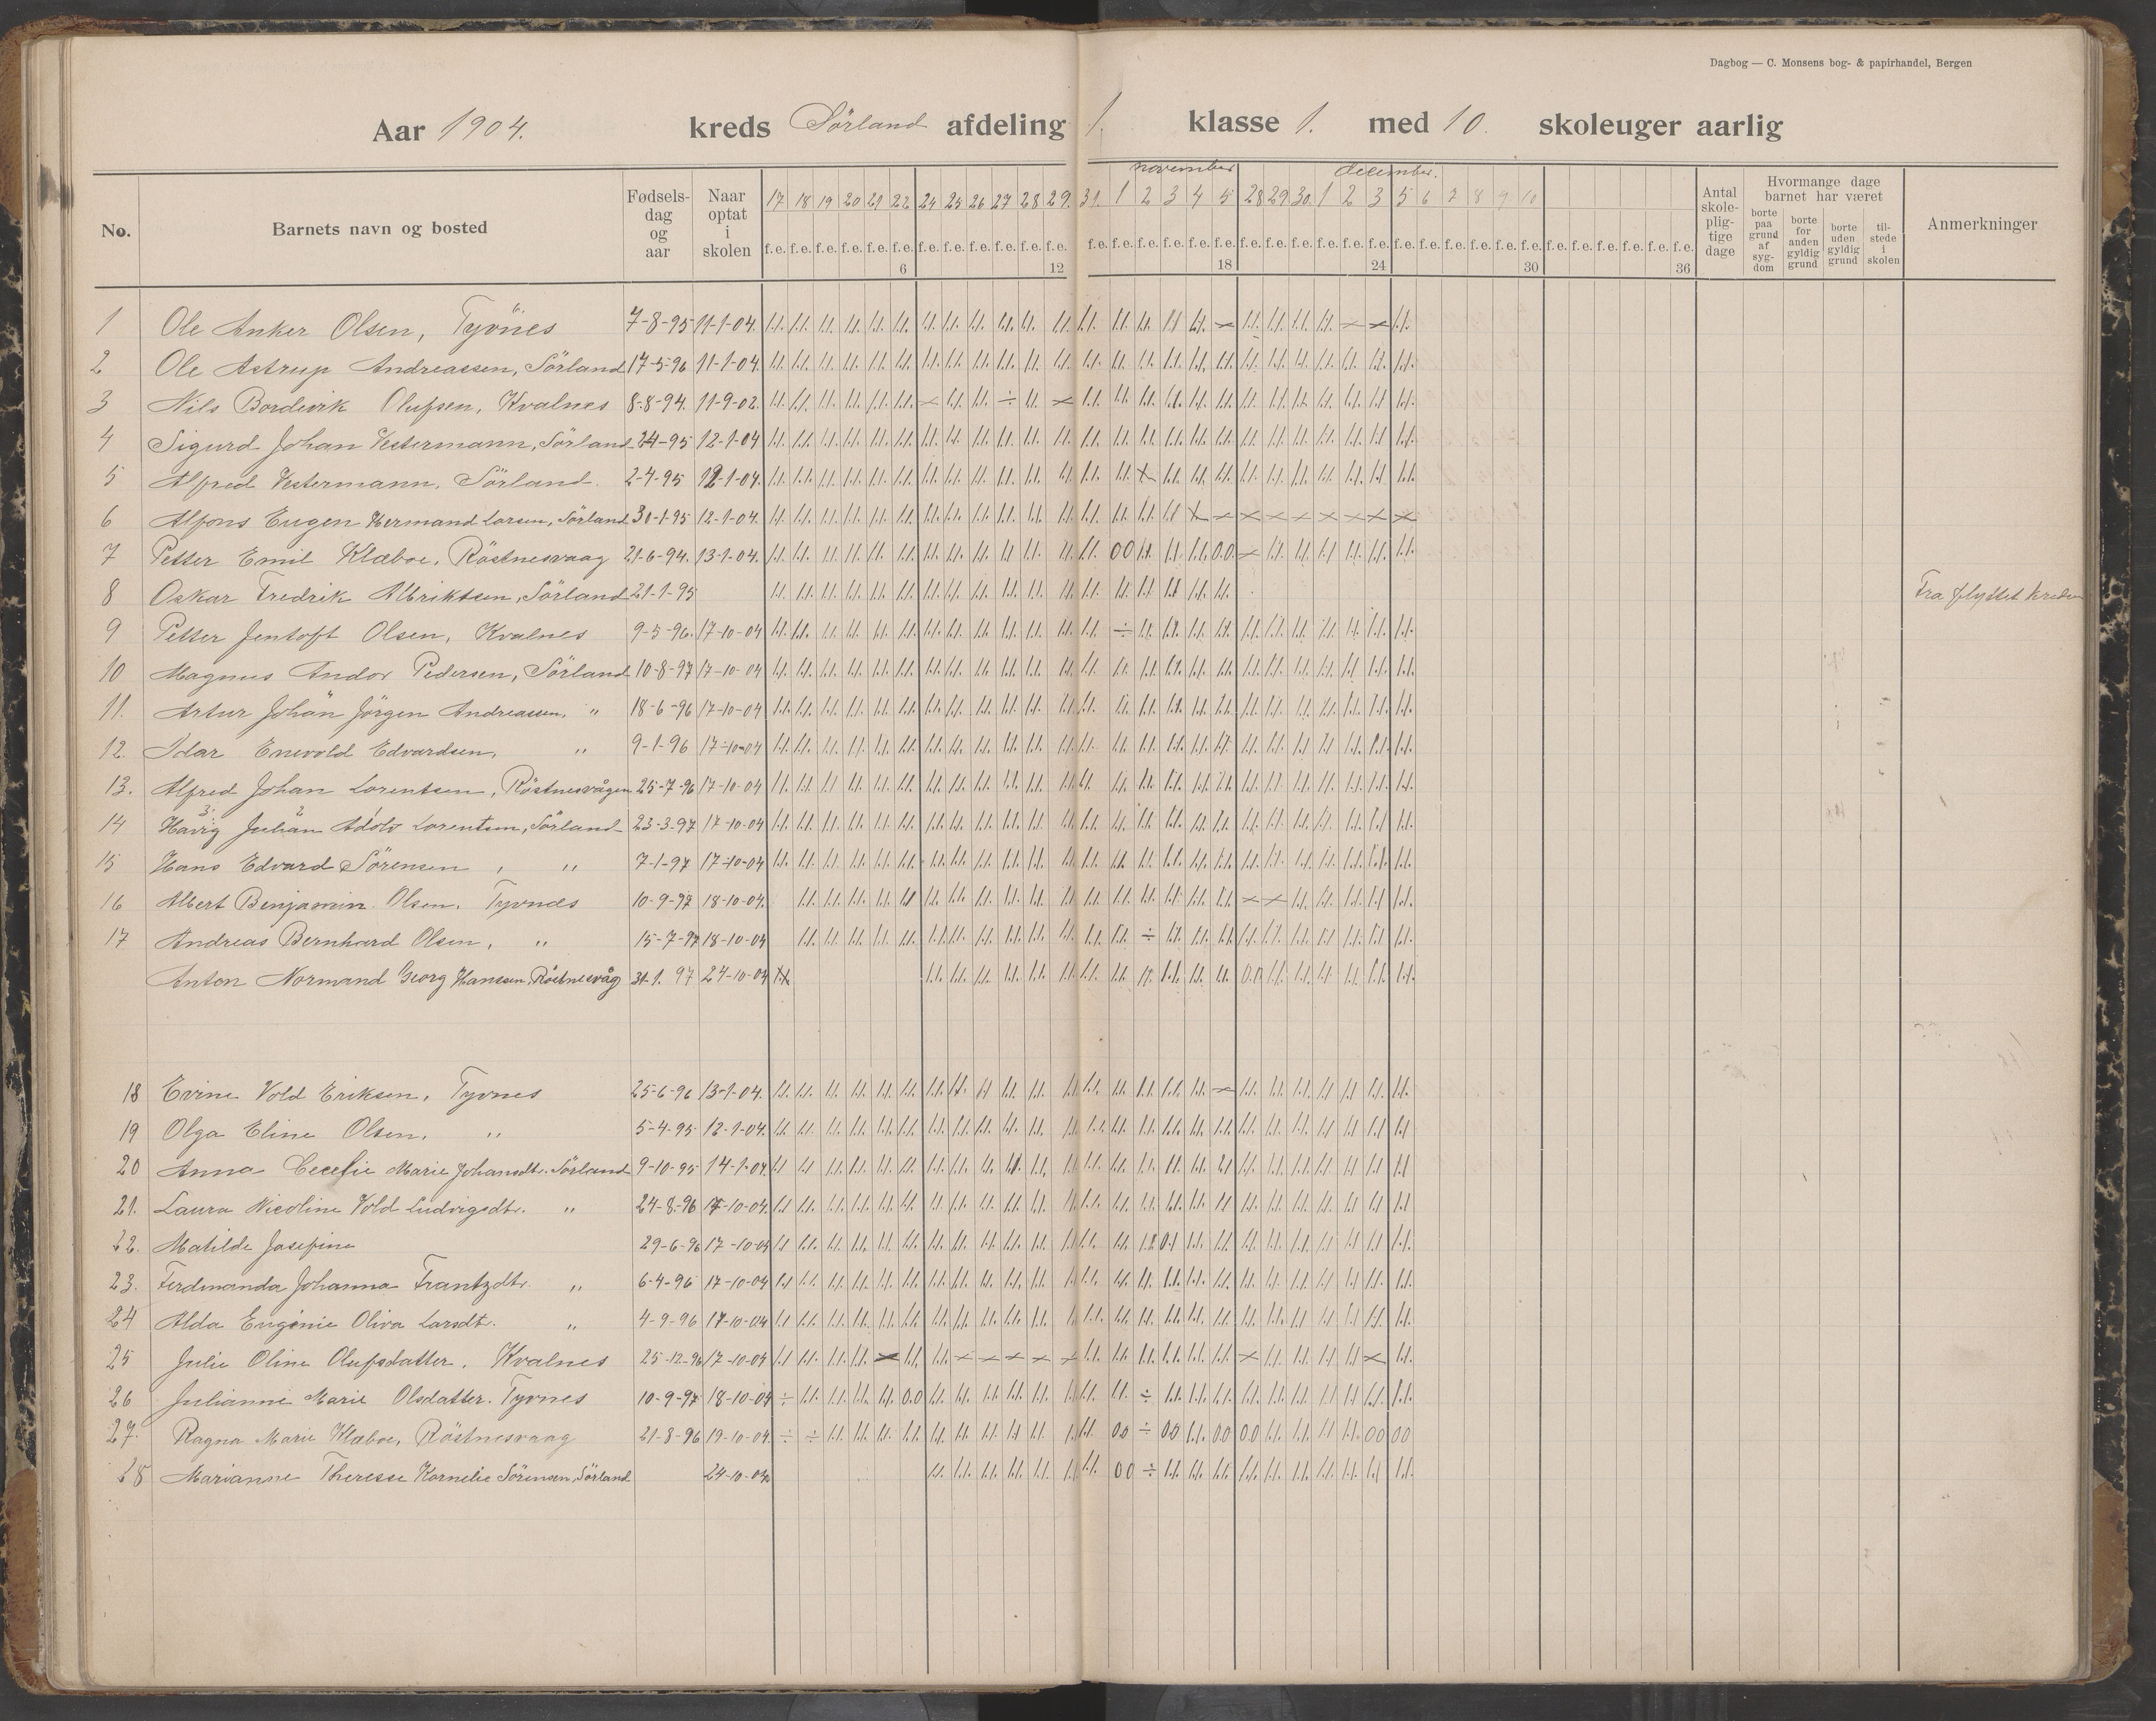 Dagbog — C. Monsens bog- & papirhandel, Bergen
Aar 1904. kreds Sörland afdeling 1. klasse 1. med 10. skoleuger aarlig
november december.
No. Barnets navn og bosted Fødsels-dag og aar Naar optat i skolen 17 18 19 20 21 22 24 25 26 27 28 29. 31. 1 2 3 4 5 28 29 30. 1 2 3 5 6 7 8 9 10 Antal skole-plig-tige dage Hvormange dage barnet har været Anmerkninger
borte paa grund af syg-dom borte for anden gyldig grund borte uden gyldig grund til-stede i skolen
f.e. f.e. f.e. f.e. f.e. f.e. f.e. f.e. f.e. f.e. f.e. f.e. f.e. f.e. f.e. f.e. f.e. f.e. f.e. f.e. f.e. f.e. f.e. f.e. f.e. f.e. f.e. f.e. f.e. f.e. f.e. f.e. f.e. f.e. f.e. f.e.
6 12 18 24 30 36
1 Ole Anker Olsen, Tyvnes 7-8-95 11-1-04.
2 Ole Astrup Andreassen, Sörland 17-5-96 11-1-04.
3 Nils Bordevik Olufsen, Kvalnes 8-8-94. 11-9-02.
4 Sigurd Johan Vestermann, Sörland 12-1-04
5 Alfred Vestermann, Sörland. 2-4-95 12-1-04.
6 Alfons Eugen Hermand Larsen, Sörland 30-1-95 12-1-04.
7 Petter Emil Klæboe, Röstnesvaag 21-6-94. 13-1-04.
8 Oskar Fredrik Albriktsen, Sörland 21-1-95 Fra flyttet kredsen
9 Petter Jentoft Olsen, Kvalnes 9-5-96. 17-10-04
10 Magnus Andor Pedersen, Sörland 10-8-97 17-10-04
11. Artur Johan Jörgen Andreassen, " 18-6-96 17-10-04
12. Idar Enevold Edvardsen, " 9-1-96 17-10-04
13. Alfred Johan Lorentsen, Röstnesvågen 25-7-96 17-10-04
14 Havig Julian Adolv Lorentsen, Sörland 23-3-97 17-10-04
15 Hans Edvard Sörensen, " 7-1-97 17-10-04
16 Albert Benjamin Olsen, Tyvnes 10-9-97 18-10-04.
17 Andreas Bernhard Olsen, " 15-7-97 18-10-04
Anton Normand Georg Hanssen, Röstnesvåg 31-1. 97 24-10-04
18 Evine Vold Eriksen, Tyvnes 25-6-96 13-1-04.
19 Olga Eline Olsen, " 5-4-95 12-1-04.
20 Anna Cecelie Marie Johansdtr. Sörland 9-10-95 14-1-04.
21. Laura Nicoline Vold Ludvigsdtr. " 24-8-96 17-10-04.
22. Matilde Josefine 29-6-96 17-10-04
23. Ferdinanda Johanna Frantzdtr. " 6-4-96 17-10-04
24 Alda Eugenie Oliva Larsdtr. " 4-9-96 17-10-04
25 Julie Oline Olufsdatter. Kvalnes 25-12-96 17-10-04
26 Julianne Marie Olsdatter. Tyvnes 10-9-97 18-10-04
27. Ragna Marie Klæboe, Röstnesvaag 21-8-96 19-10-04.
28 Marianne Theresse Kornelie Sörensen, Sörland 24-10-04